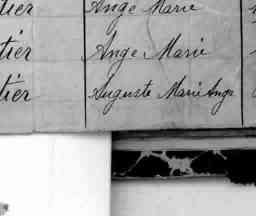 tier Ange Marie
tier Ange Marie
tier Auguste Marie Ange